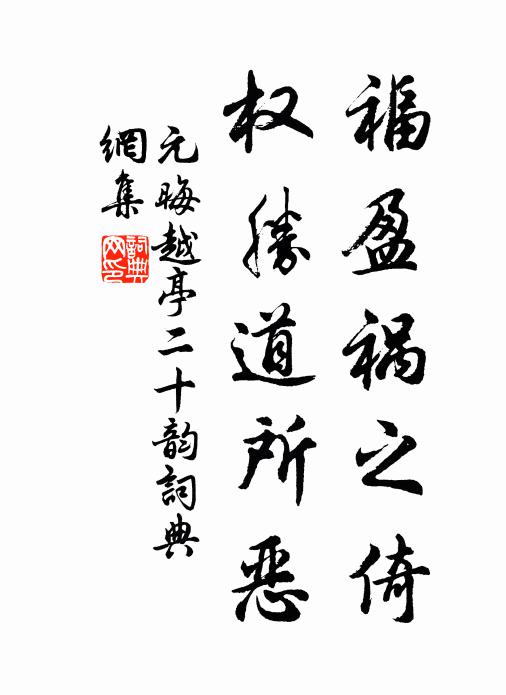 福盈祸之倚
权勝道所恶
元晦越亭二十韵詞典
網集
詞典
网印